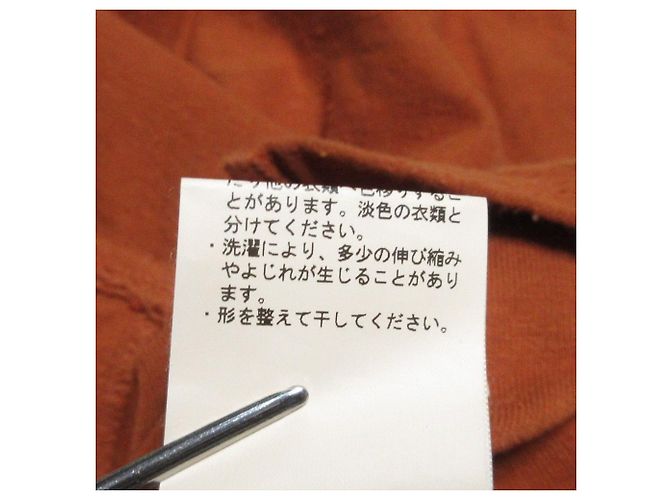 たり他の衣類へ色移りするこ
とがあります。淡色の衣類と
分けてください。
・洗濯により、多少の伸び縮み
やよじれが生じることがあり
ます。
・形を整えて干してください。